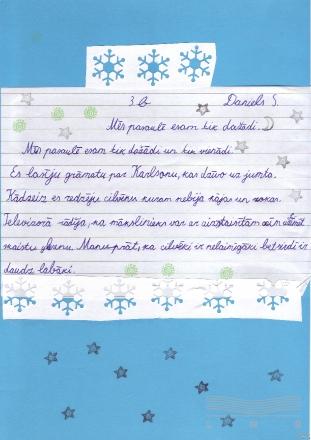 3.b Daniels S.
Mēs pasaulē esam tik dažādi.
Mēs pasaulē esam tik dažādi un tik vienādi.
Es lasīju grāmatu par Karlsonu, kas dzīvo uz jumta.
Kādreiz es redzēju cilvēku kuram nebija kājas un rokas.
Televizorā rādīja, ka mākslinieks var ar aizstaistītām acīm
skaistu gleznu. Manuprāt, ka cilvēki ir nelaimīgāki bet sirdī ir
daudz labāki.